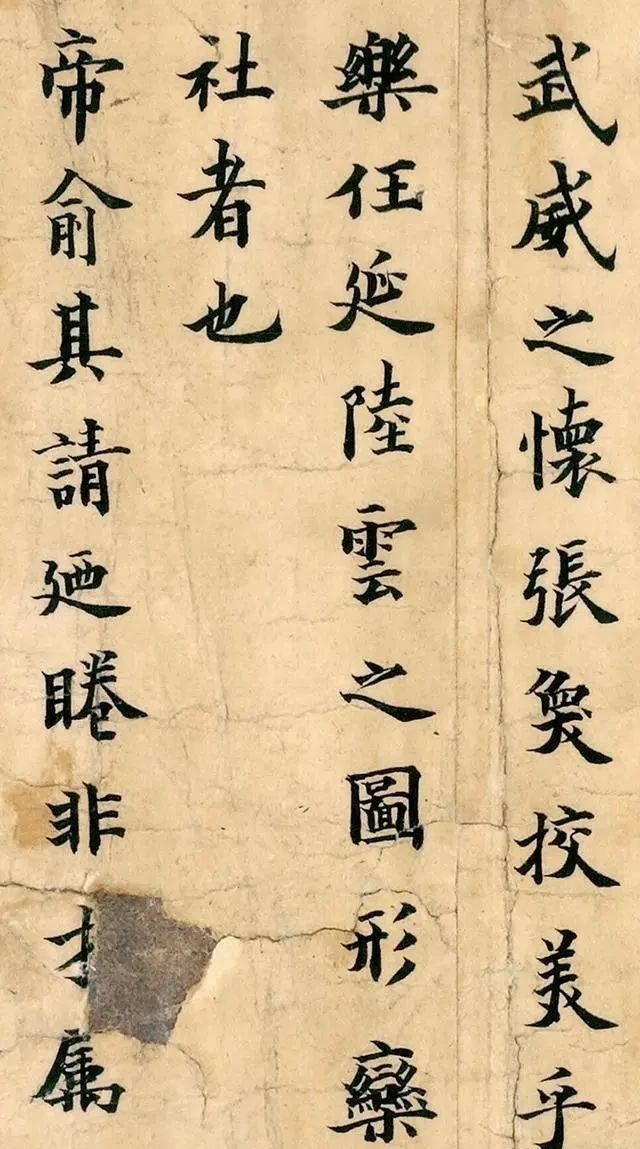 武威之懷張奐挍美乎
樂任延陸雲之圖形欒
社者也
帝俞其請廼睠非才属